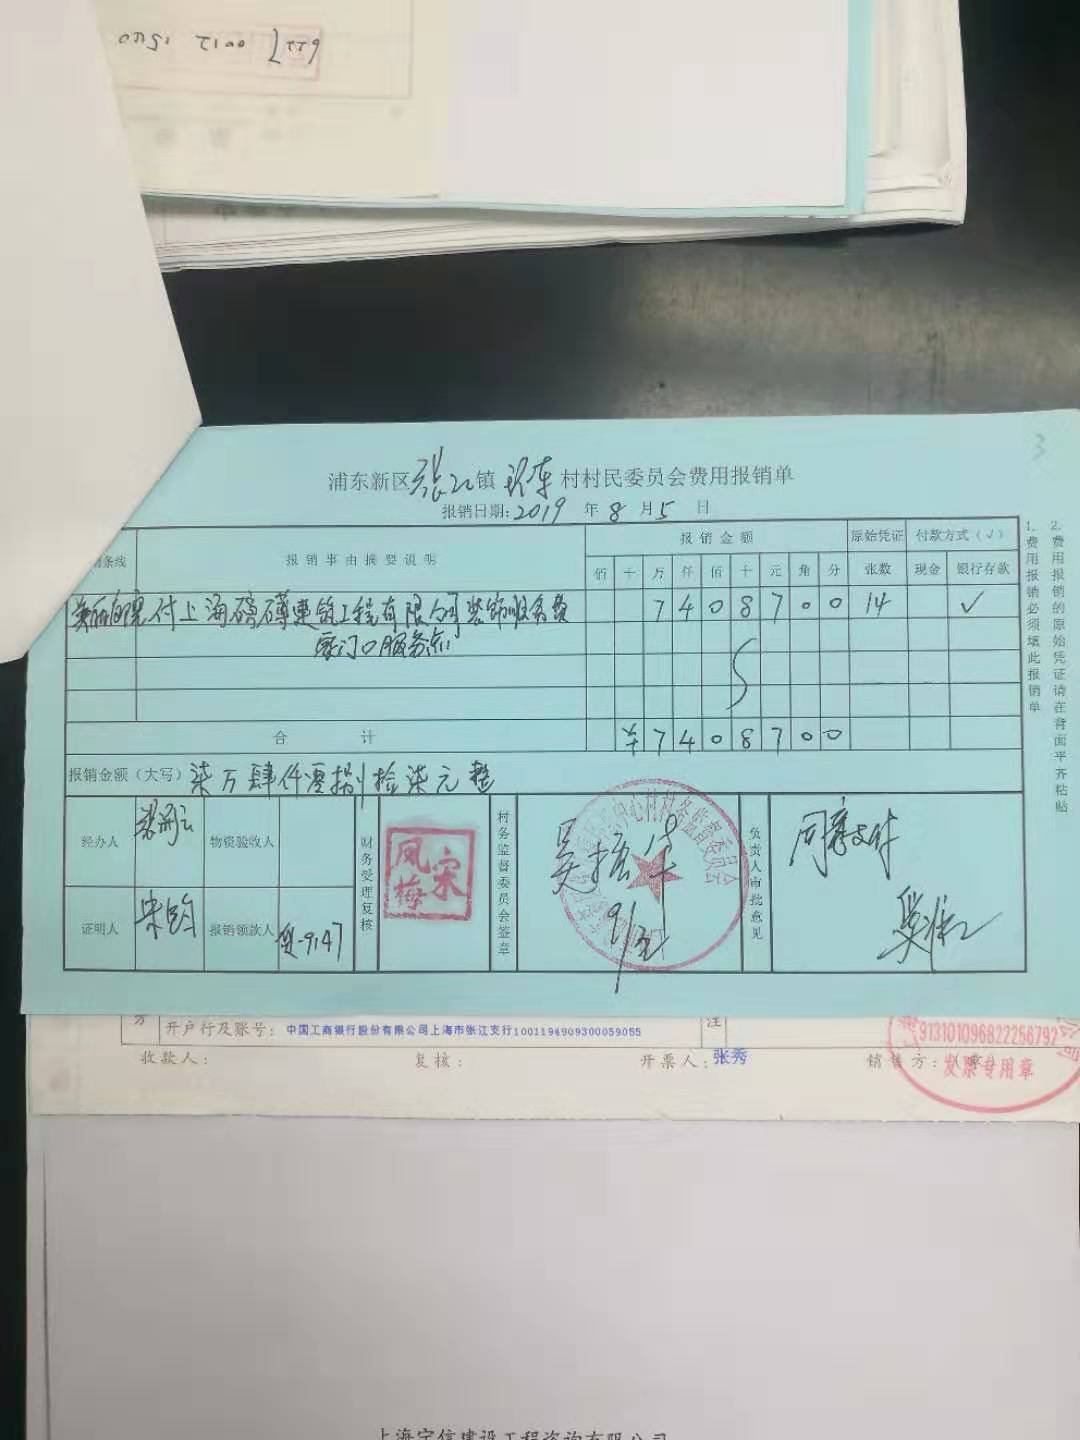 浦东新区张江镇环东村村民委员会费用报销单
报销日期:2019年8月5日
3
条线 报销事由摘要说明 报销金额 原始凭证 付款方式(√)
佰 十 万 仟 佰 十 元 角 分 张数 现金 银行存款
付上海 建筑工程有限公司装饰服务费 7 4 0 8 7 0 0 14 √
家门口服务点
合计 ¥ 7 4 0 8 7 0 0
报销金额(大写) 柒万肆仟零捌拾柒元整
经办人 物资验收人 财务受理复核 村务监督委员会签章 负责人审批意见
宋凤梅
同意支付
证明人 报销领款人
9/5
1.费用报销必须填此报销单
2.费用报销的原始凭证请在背面平齐粘贴
方 开户行及账号: 中国工商银行股份有限公司上海市张江支行1001194909300059055 注
收款人: 复核: 开票人:张秀 销售方:(章)
913101096822256792
发票专用章
上海宇信建设工程咨询有限公司